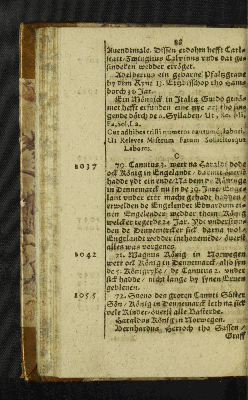 88
Auendtmale. Dissen erdohm hefft Carl
statt, Zwinglius Calvinus vnde dat ge-
sinde
Adelbertus ein geborne Pfaltzgraue
by dem Ryne 13. Ertzbisschop tho
borch 30 Jar.
Ein Mönnick in Italia Guido genö-
met hefft erfunden eine nye art tho sin-
gende dorch de 6. Syllaben/ Ut, Re, Mi,
Fa, Sol, La.
Cur adhibes tristi numeros cantumq; labori,
Ut Relevet Miserum Fatum Solitosque
Labores.
1037 70. Canutus 3. wert na Haraldo dode
ock König in Engelande
hadde ydt ein ende
in Dennemarck nu in de 29. Jare.
lant vnder erer macht gehadt hadden/
erwelden de Engelender Eduardum
nen Engelender wedder thom König
welcker regerde 24 Jar.
den de Dennemercker sick darna wol
Engelandt wedder inthonemende/ överst
alles was vorgeues.
1042 71. Magnus König in Norwegen
wert ock König in Dennemarck
de 5. Königryke/ de Canutus 2. vnder
sick hadde/ nicht lange by synen Eruen
gebleuen.
1055 72. Sueno des groten Canuti Süster
Sön/ König in Dennemarck leth na sick
vele Kinder/ överst alle Basterde.
Haraldus König in Norwegen.
Bernhardus/ Hertoch tho Sassen/
Graff